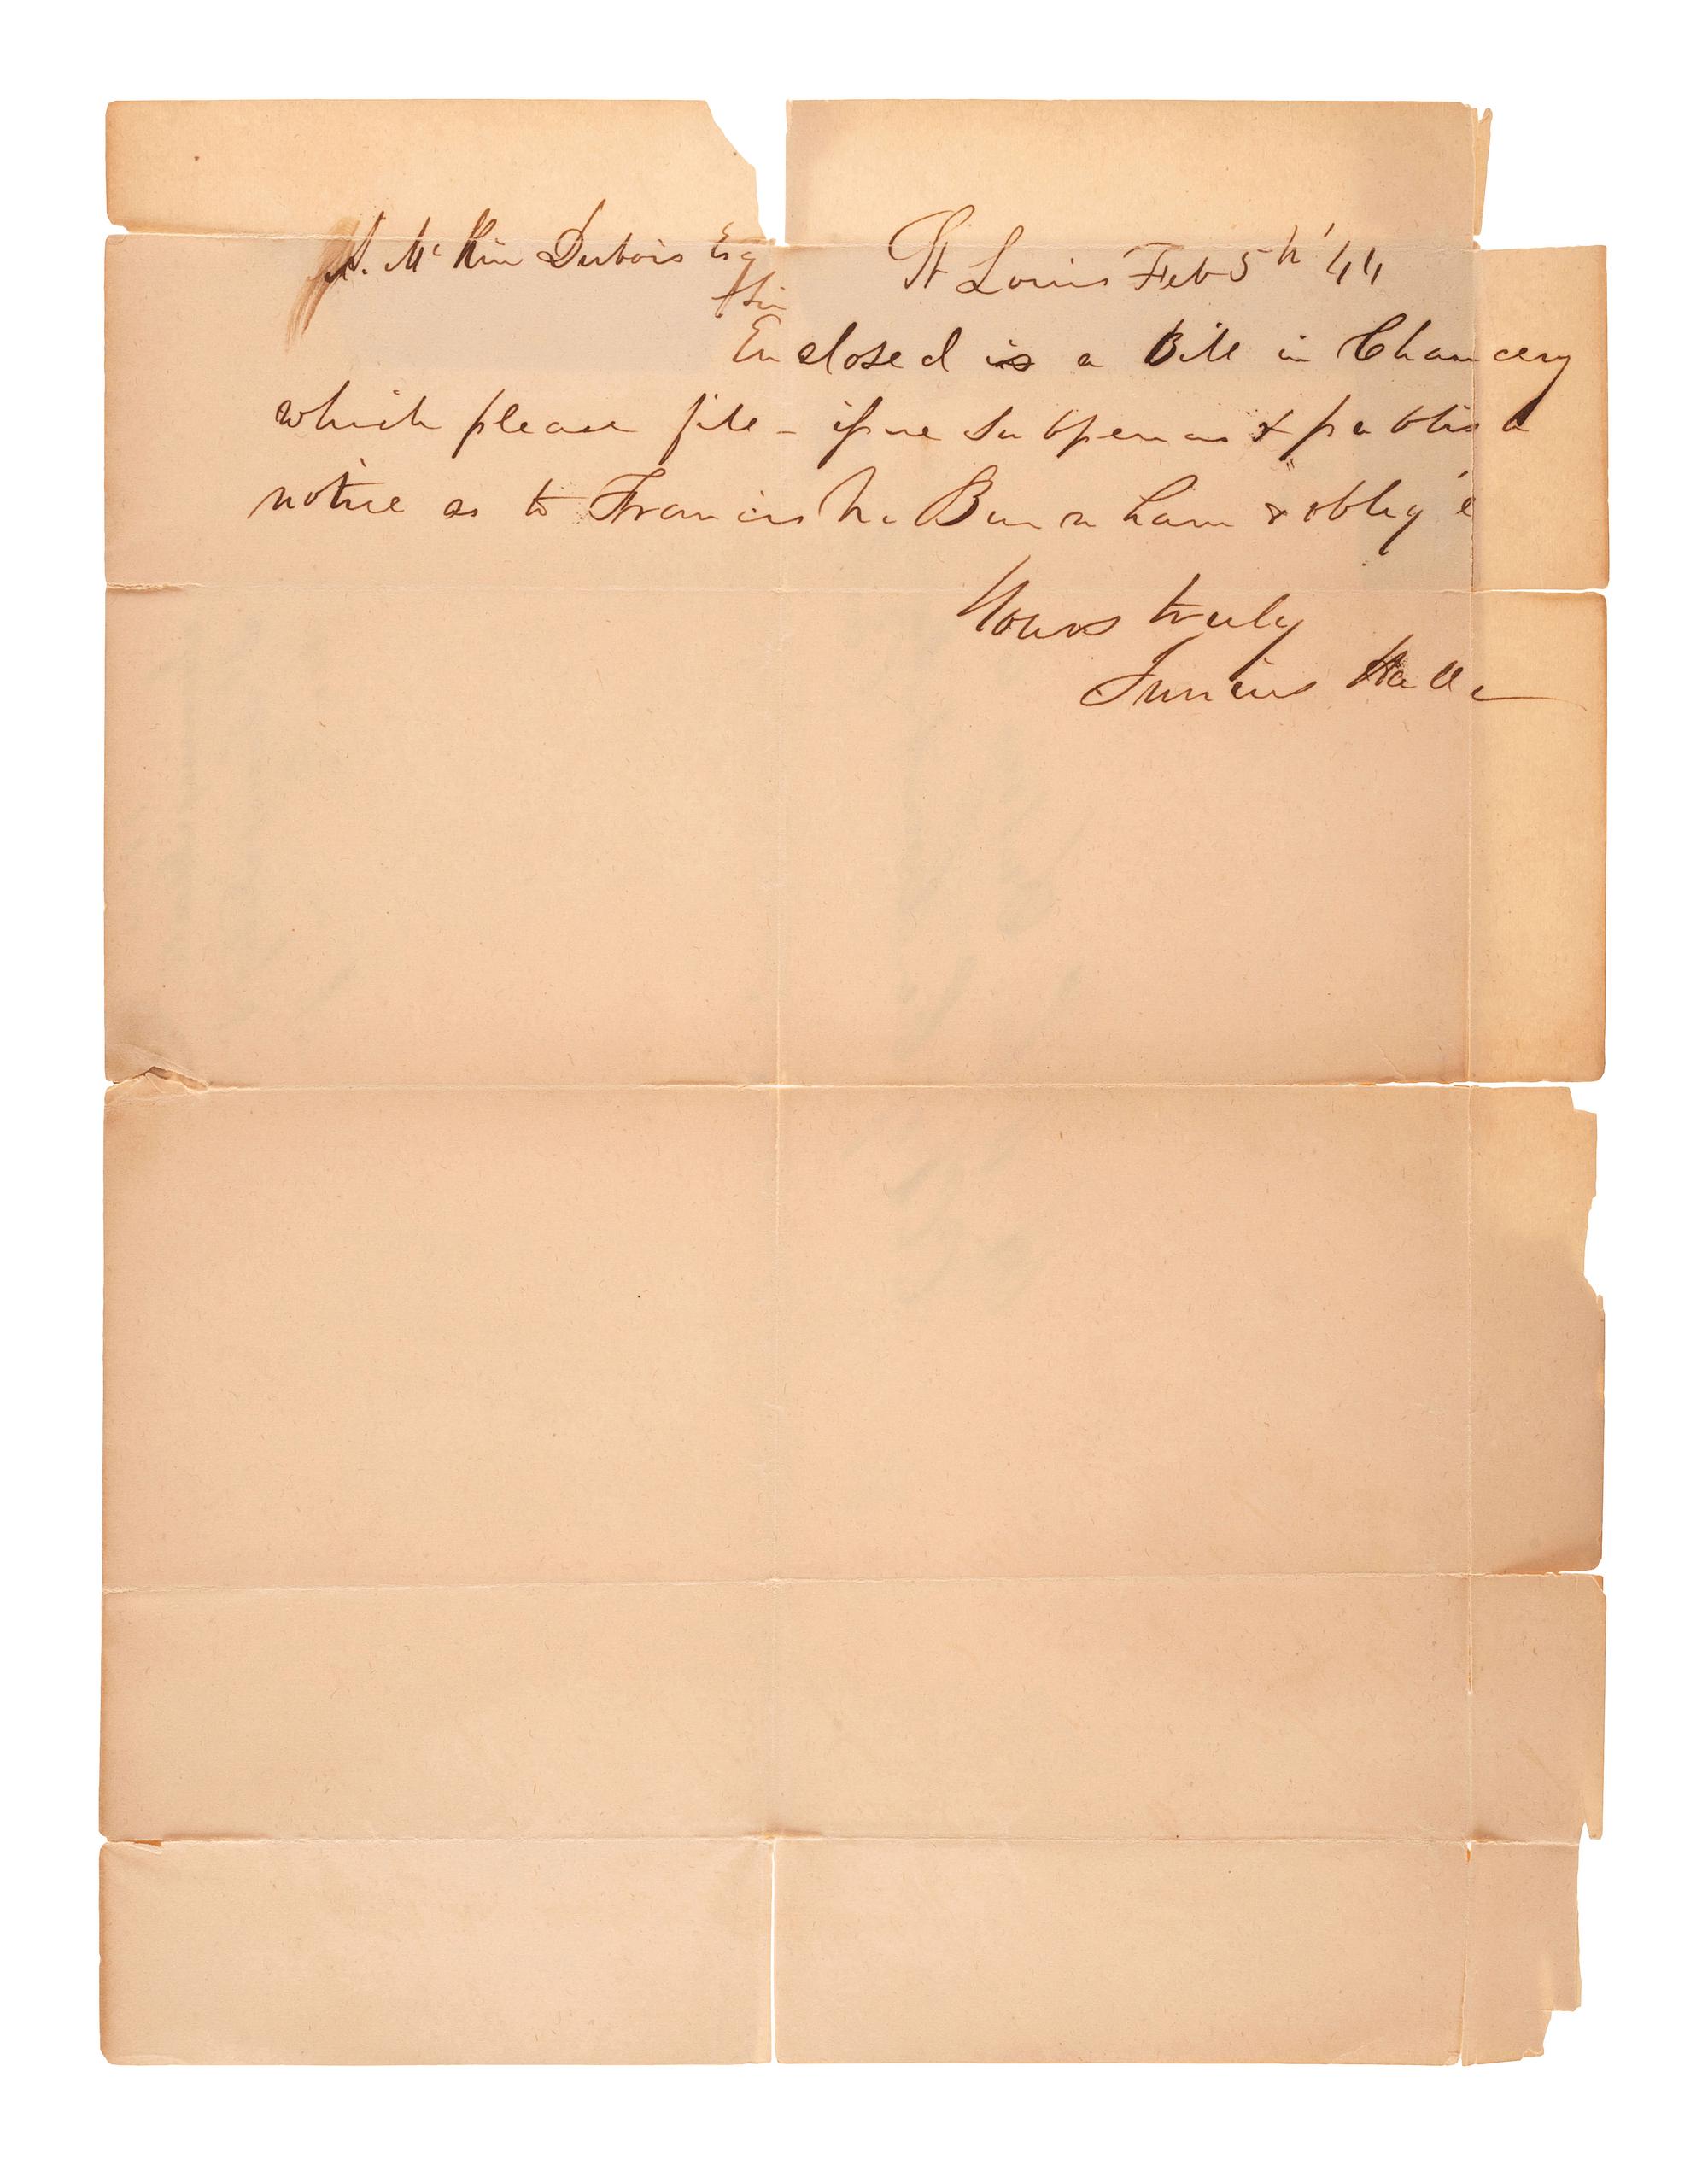 J. McKin Dubois Esq
St Louis Feb 5th '44
Sir
Enclosed is a Bill in Chancery
which please file - issue subpoenas & publish
notice as to Francis Burnham & oblig'e
Yours truly
Junius Hall